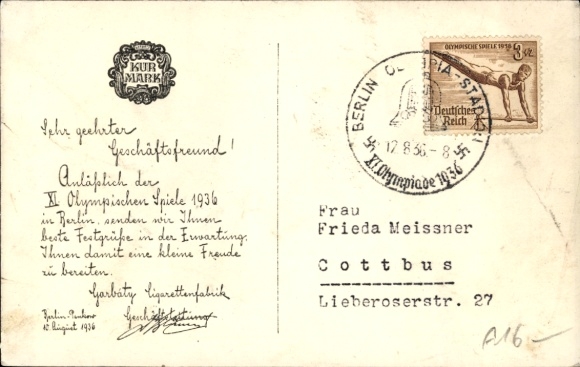 KUR
MARK
Sehr geehrter
Geschäftsfreund!
Anläßlich der
XI. Olympischen Spiele 1936
in Berlin, senden wir Ihnen
beste Festgrüße in der Erwartung,
Ihnen damit eine kleine Freude
zu bereiten.
Garbáty Cigarettenfabrik
Geschäftsleitung
Berlin-Pankow
10. August 1936
OLYMPISCHE SPIELE 1936
3
Deutsches
Reich
BERLIN OLYMPIA-STADION
12.8.36.-8
XI. Olympiade 1936
Frau
Frieda Meissner
Cottbus
Lieberoserstr. 27
A16-